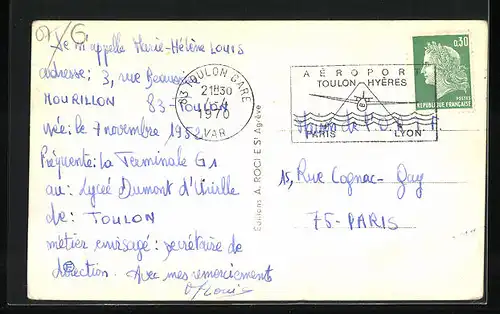 Je m'appelle Marie-Hélène LOUIS
adresse: 3, rue Beaumarie
MOURILLON 83-TOULON
née: le 7 novembre 1952
Fréquente: La Terminale G1
au: Lycée Dumont d'Urville
de: TOULON
métier envisagé: secrétaire de
direction. Avec mes remerciements
Louis
Editions A. ROCHE St Agrève
83 TOULON GARE
21H30
1970
VAR
AÉROPORT
TOULON-HYÈRES
PARIS LYON
0,30
POSTES
REPUBLIQUE FRANÇAISE
15, Rue Cognac-Jay
75-PARIS